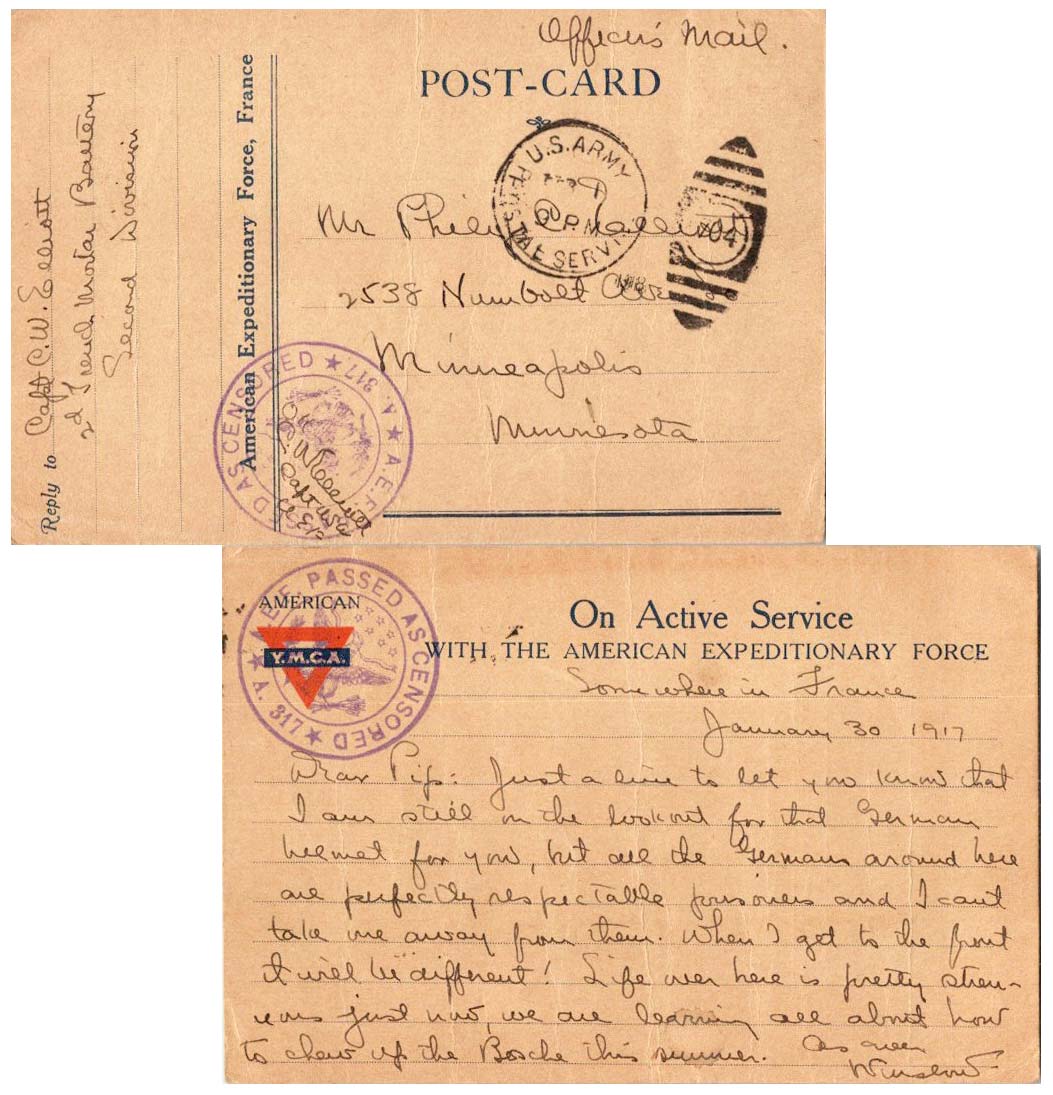 Officer's Mail.
POST-CARD
U.S. ARMY
POSTAL SERVICE
P.M.
704
Mr Philip
2538 Humbolt Ave
Minneapolis
Minnesota
American Expeditionary Force, France
Reply to Capt C.W. Elliott
2d Trench Mortar Battery
Second Division
A.E.F. PASSED AS CENSORED
A. 317
Capt
AMERICAN
Y.M.C.A.
A.E.F. PASSED AS CENSORED
A. 317
On Active Service
WITH THE AMERICAN EXPEDITIONARY FORCE
Somewhere in France
January 30 1917
Dear Pip: Just a line to let you know that
I am still on the lookout for that German
helmet for you, but all the Germans around here
are perfectly respectable prisoners and I can't
take one away from them. When I get to the front
it will be different! Life over here is pretty stren-
uous just now, we are learning all about how
to chew up the Bosche this summer. As ever
Winslow